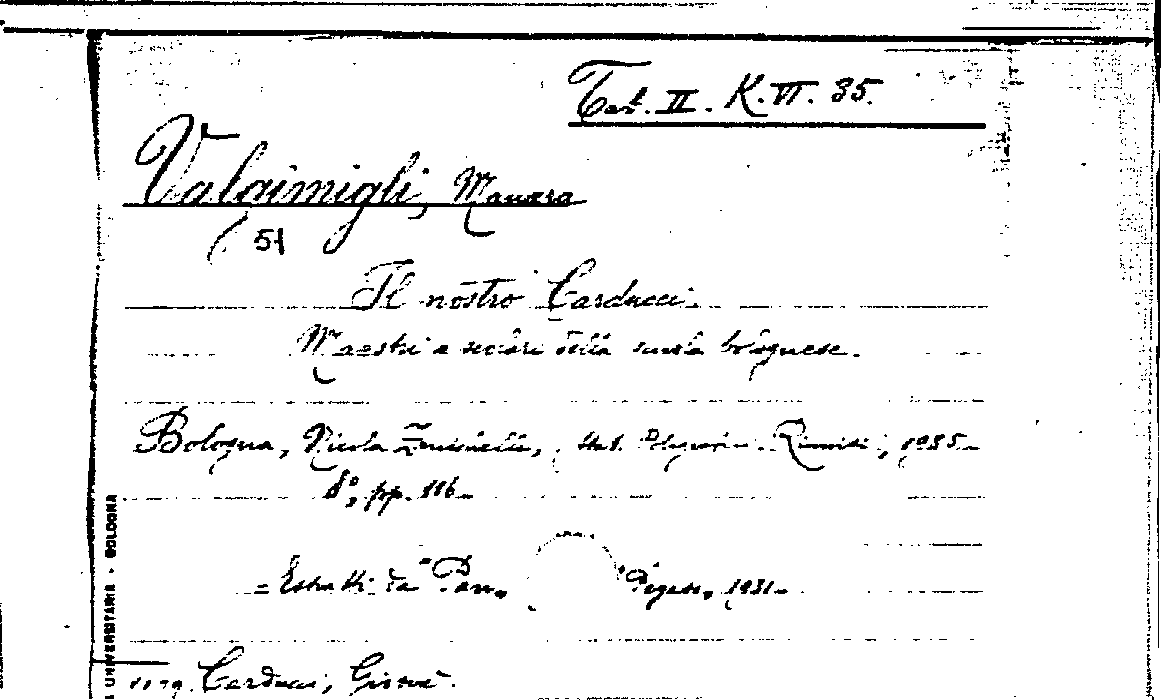 Tav. II. K. VI. 35.
Valgimigli, Manara
(51
Il nostro Carducci.
Maestri e scolari della scuola bolognese.
Bologna, Nicola Zanichelli, Stab. Poligrafici Riuniti, 1935.
8°, pp. 116.
= Estratti da "Pan,, Pegaso,, 1931.
Carducci, Giosuè.
UNIVERSITARIA - BOLOGNA